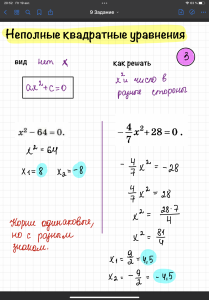 9 Задание
Неполные квадратные уравнения
3
вид нет x
ax²+c=0
как решать
x² и число в
разные стороны
x² − 64 = 0.
x² = 64
x₁ = 8 x₂ = -8
Корни одинаковые,
но с разным
знаком.
−4/7x² + 28 = 0.
− 4/7 x² = −28
4/7 x² = 28
x² = 28·7/4
x² = 81/4
x₁ = 9/2 = 4,5
x₂ = −9/2 = −4,5